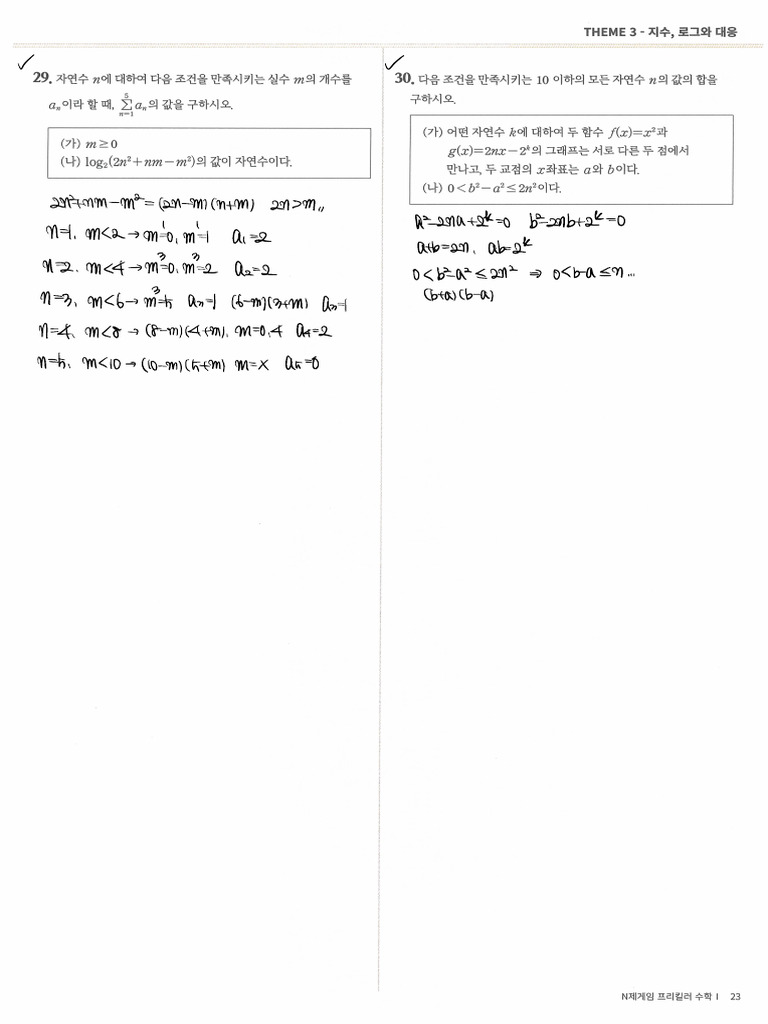 THEME 3 - 지수, 로그와 대응
29. 자연수 n에 대하여 다음 조건을 만족시키는 실수 m의 개수를
aₙ이라 할 때, ∑ₙ₌₁⁵ aₙ의 값을 구하시오.
(가) m ≥ 0
(나) log₂(2n²+nm−m²)의 값이 자연수이다.
2n²+nm−m² = (2n−m)(n+m) 2n>m,,
n=1, m<2 → m=0, m=1 a₁=2
n=2. m<4 → m=0, m=2 a₂=2
n=3, m<6 → m=5 a₃=1 (6-m)(3+m) a₃=1
n=4, m<8 → (8-m)(4+m), m=0,4 a₄=2
n=5, m<10 → (10-m)(5+m) m=× a₅=0
30. 다음 조건을 만족시키는 10 이하의 모든 자연수 n의 값의 합을
구하시오.
(가) 어떤 자연수 k에 대하여 두 함수 f(x)=x²과
g(x)=2nx−2ᵏ의 그래프는 서로 다른 두 점에서
만나고, 두 교점의 x좌표는 a와 b이다.
(나) 0<b²−a²≤2n²이다.
a²−2na+2ᵏ=0 b²−2nb+2ᵏ=0
a+b=2n, ab=2ᵏ
0<b²−a²≤2n² ⇒ 0<b-a≤n ...
(b+a)(b-a)
N제게임 프리킬러 수학 I 23